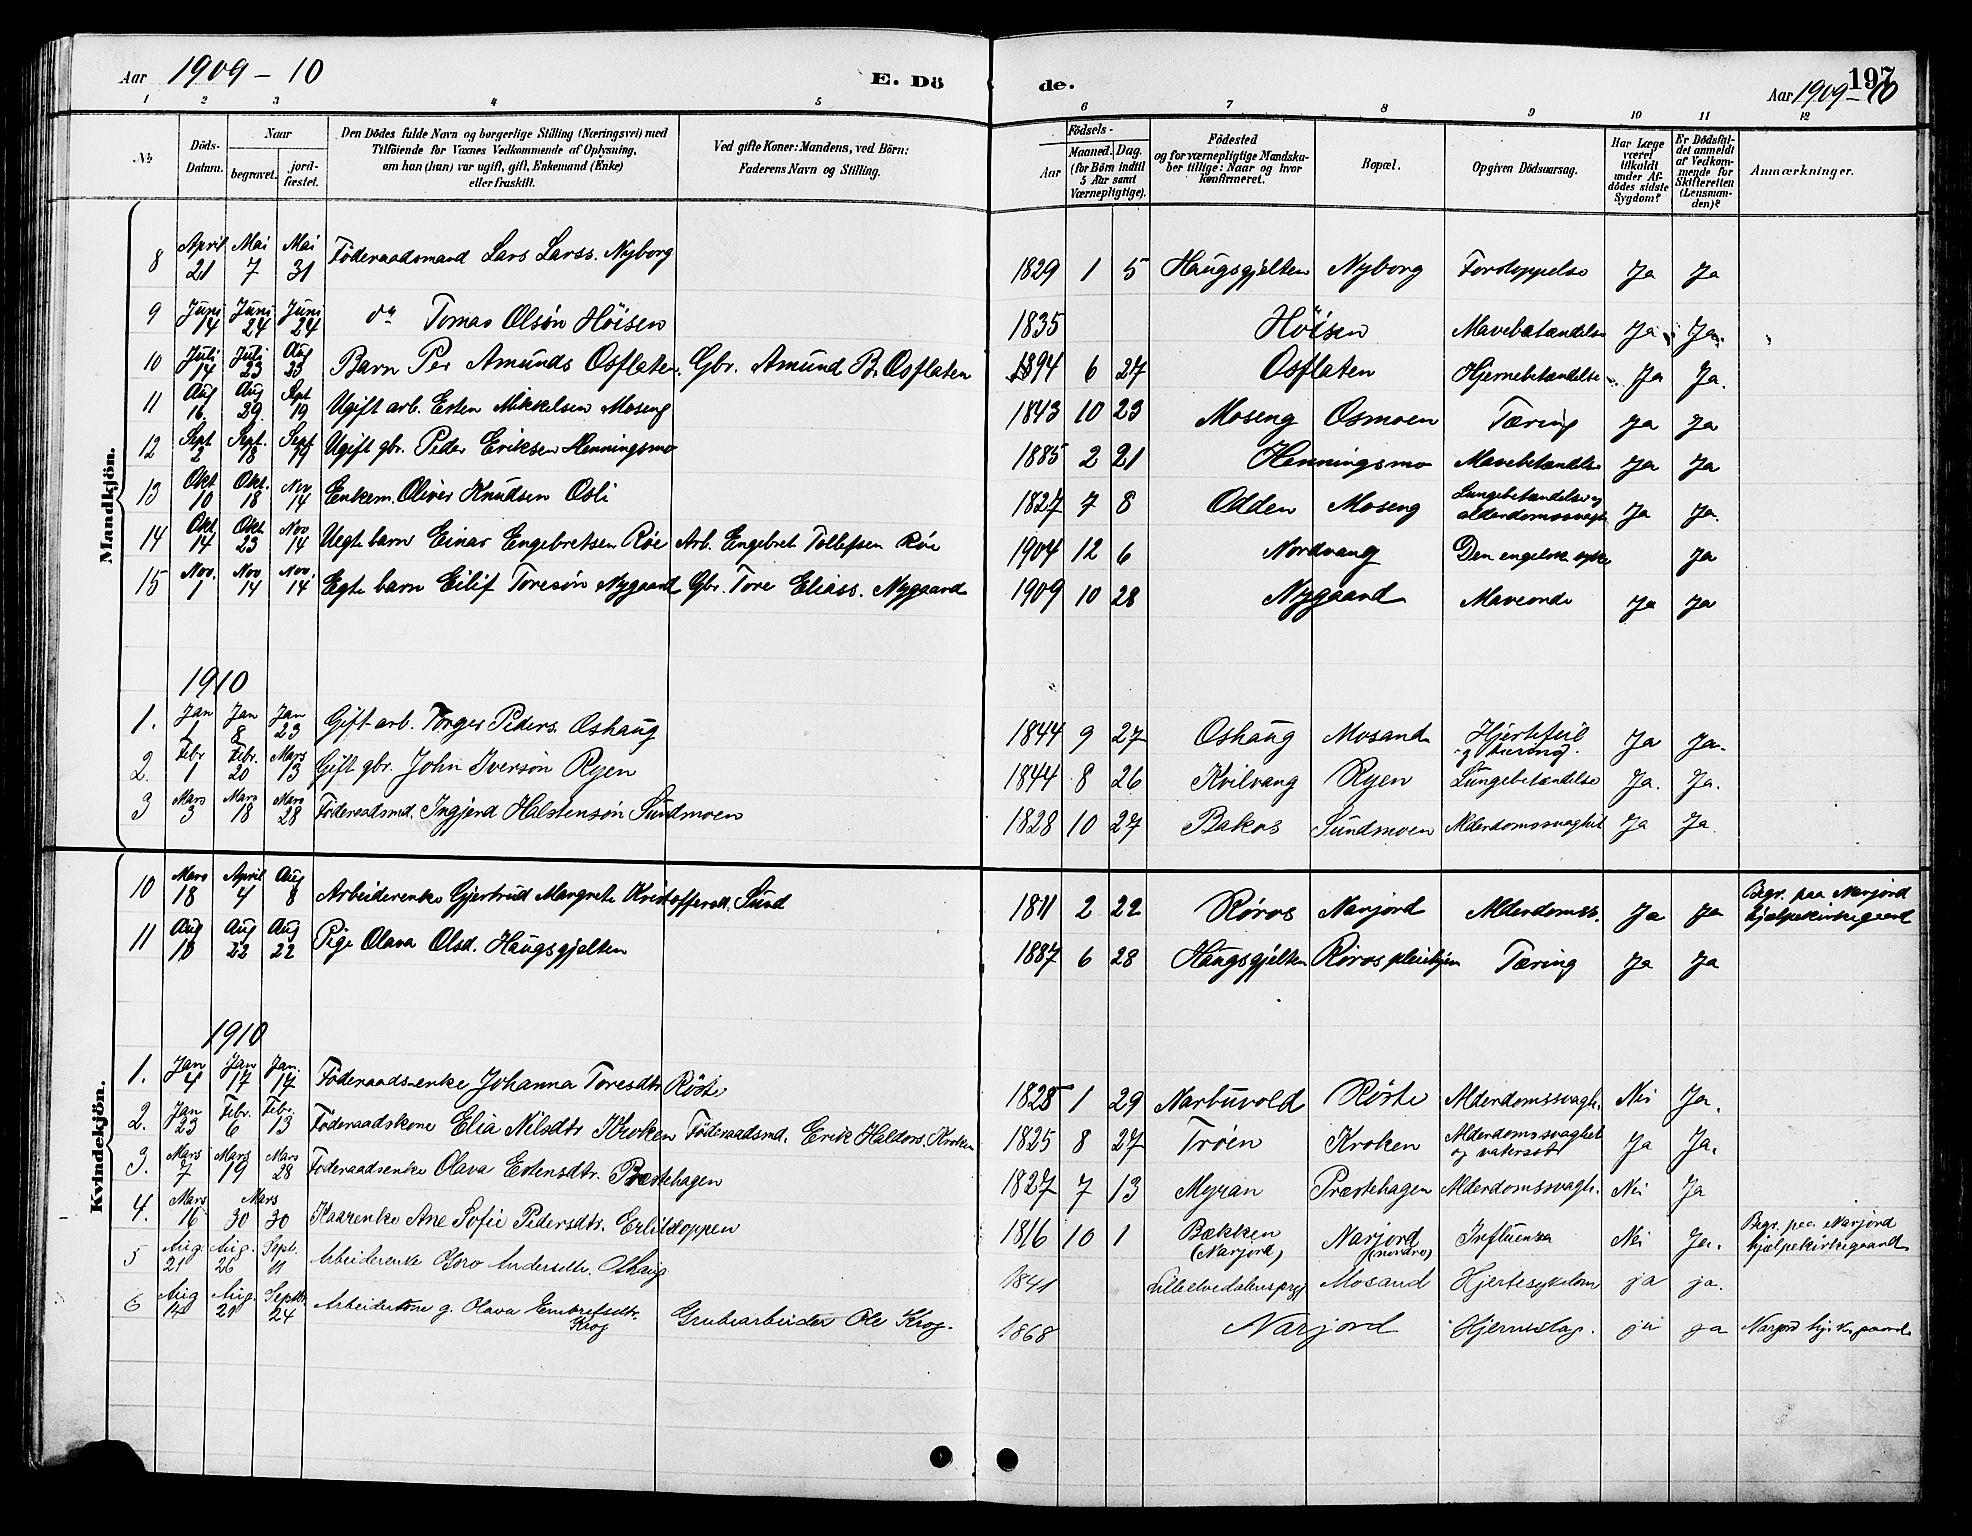 Aar 1909 - 10 E. Dö de. Aar 1909 - 10 197
1 2 3 4 5 6 7 8 9 10 11 12
№ Döds-Datum. Naar begravet. jordfæstet. Den Dödes fulde Navn og borgerlige Stilling (Næringsvei) med Tilföiende for Voxnes Vedkommende af Oplysning, om han (hun) var ugift, gift, Enkemand (Enke) eller fraskilt. Ved gifte Koner: Mandens, ved Börn: Faderens Navn og Stilling. Födsels- Aar Maaned. Dag. (for Börn indtil 5 Aar samt Værnepligtige). Födested og for værnepligtige Mandskaber tillige: Naar og hvor konfirmeret. Bopæl. Opgiven Dödsaarsag. Har Læge været tilkaldt under Afdödes sidste Sygdom? Er Dödsfaldet anmeldt af Vedkommende for Skifteretten (Lensmanden)? Anmærkninger.
Mandkjön.
8 April 21 Mai 7 Mai 31 Föderaadsmand Lars Larss. Nyborg 1829 1 5 Haugsgjelten Nyborg Forstoppelse Ja Ja
9 Juni 14 Juni 24 Juni 24 do Tomas Olsön Höisen 1835 Höisen Mavebetændelse Ja Ja
10 Juli 14 Juli 23 Aug 23 Barn Per Amunds Osflaten. Gbr. Amund B. Osflaten 1894 6 27 Osflaten Hjernebetændelse Ja Ja.
11 Aug 16 Aug 29 Sept 19 Ugift arb. Esten Mikkelsen Moseng 1843 10 23 Moseng Osmoen Tæring Ja Ja
12 Sept 2 Sept. 18 Sept 19 Ugift gbr. Peder Eriksen Henningsmo 1885 2 21 Henningsmo Mavebetændelse Ja Ja
13 Okt 10 Okt. 18 Nov 14 Enkem. Oliver Knudsen Osli 1827 7 8 Odden Moseng Lungebetændelse og alderdomssvagh. Ja Ja.
14 Okt 14 Okt 23 Nov 14 Uegte barn Einar Engebretsen Röe Arb. Engebret Tollefsen Röe 1904 12 6 Nordvang Den engelske syke Ja
15 Nov. 1 Nov 14 Nov. 14 Egte barn Eilif Toresön Nygaard Gbr. Tore Eliass. Nygaard 1909 10 28 Nygaard Maveonde Ja Ja
1910
1. Jan 1 Jan 8 Jan 23 Gift arb. Torger Peders. Oshaug 1844 9 27 Oshaug Mosand Hjertefeil og tæring. Ja Ja.
2. Febr 1 Febr. 20 Mars 13 Gift gbr. John Iversön Ryen 1844 8 26 Kvilvang Ryen Lungebetændelse Ja. Ja.
3 Mars 3 Mars 18 Mars 28 Föderaadsmd. Ingjerd Halstensön Sundmoen 1828 10 27 Bakos Sundmoen Alderdomssvaghet Ja Ja.
Kvindekjön.
10 Mars 18 April 4 Aug 8 Arbeiderenke Gjertrud Margrete Kristoffersdt. Sund 1811 2 22 Röros Narjord Alderdomss. Ja Ja Begr. paa Narjord hjælpekirkegaard
11 Aug 10 Aug 22 Aug 22 Pige Olava Olsd. Haugsgjelten 1887 6 28 Haugsgjelten Röros pleiehjem Tæring Ja Ja
1910
1. Jan 4 Jan 17 Jan. 17 Föderaadsenke Johanna Toresdtr Röste 1825 1 29 Narbuvold Röste Alderdomssvagh. Nei Ja.
2. Jan 23 Febr. 6 Febr. 13 Föderaadskone Elia Nilsdtr Kroken Föderaadsmd. Erik Haldors. Kroken 1825 8 27 Tröen Kroken Alderdomssvaghet og vatersot Ja Ja.
3. Mars 7 Mars 19 Mars 28 Föderaadsenke Olava Estensdtr. Præstehagen 1827 7 13 Myran Præstehagen Alderdomssvagh. Nei Ja
4. Mars 16 Mars 30 30 Kaarenke Ane Sofie Pedersdtr. Erlildoppen 1816 10 1 Bækken (Narjord) Narjord (nordre) Influenza Nei Ja. Begr. paa Narjord hjælpekirkegaard
5 Aug. 21 Aug. 26 Sept. 11 Arbeiderenke Goro Andersdtr. Oshaug 1841 Lilleelvedalens prgj Mosand Hjertesykdom ja ja.
6 Aug 14 Aug. 20 Septbr 24 Arbeiderkone g. Olava Embretsdtr. Krog Grubearbeider Ole Krog. 1868 Narjord Hjerneslag. ja ja Narjord hj. k. gaard